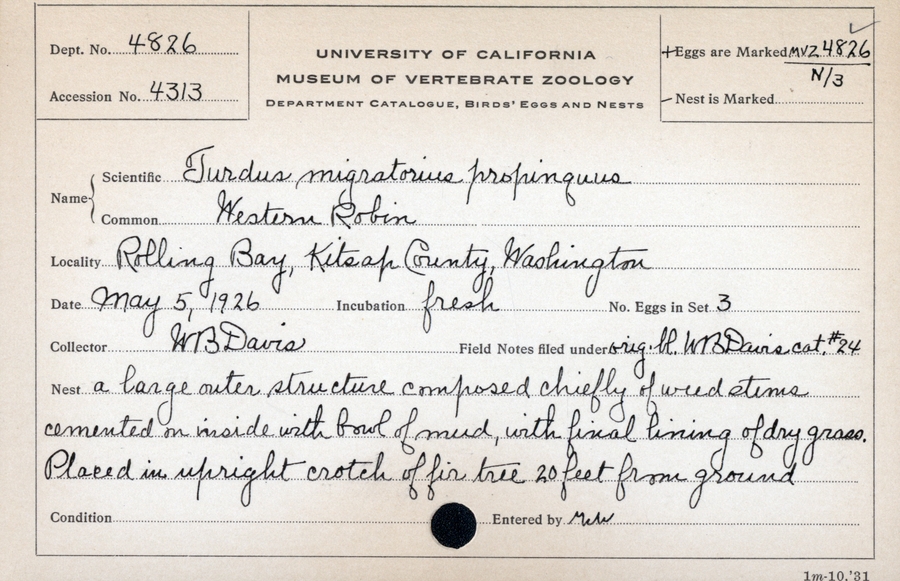 Dept. No. 4826
Accession No. 4313
UNIVERSITY OF CALIFORNIA
MUSEUM OF VERTEBRATE ZOOLOGY
DEPARTMENT CATALOGUE, BIRDS' EGGS AND NESTS
+Eggs are Marked MVZ 4826
N/3
– Nest is Marked
Name { Scientific Turdus migratorius propinquus
Common Western Robin
Locality Rolling Bay, Kitsap County, Washington
Date May 5, 1926 Incubation fresh No. Eggs in Set 3
Collector WB Davis Field Notes filed under orig. bl. WB Davis cat. #24
Nest a large outer structure composed chiefly of weed stems
cemented on inside with bowl of mud, with final lining of dry grass.
Placed in upright crotch of fir tree 20 feet from ground
Condition Entered by
1m-10,'31